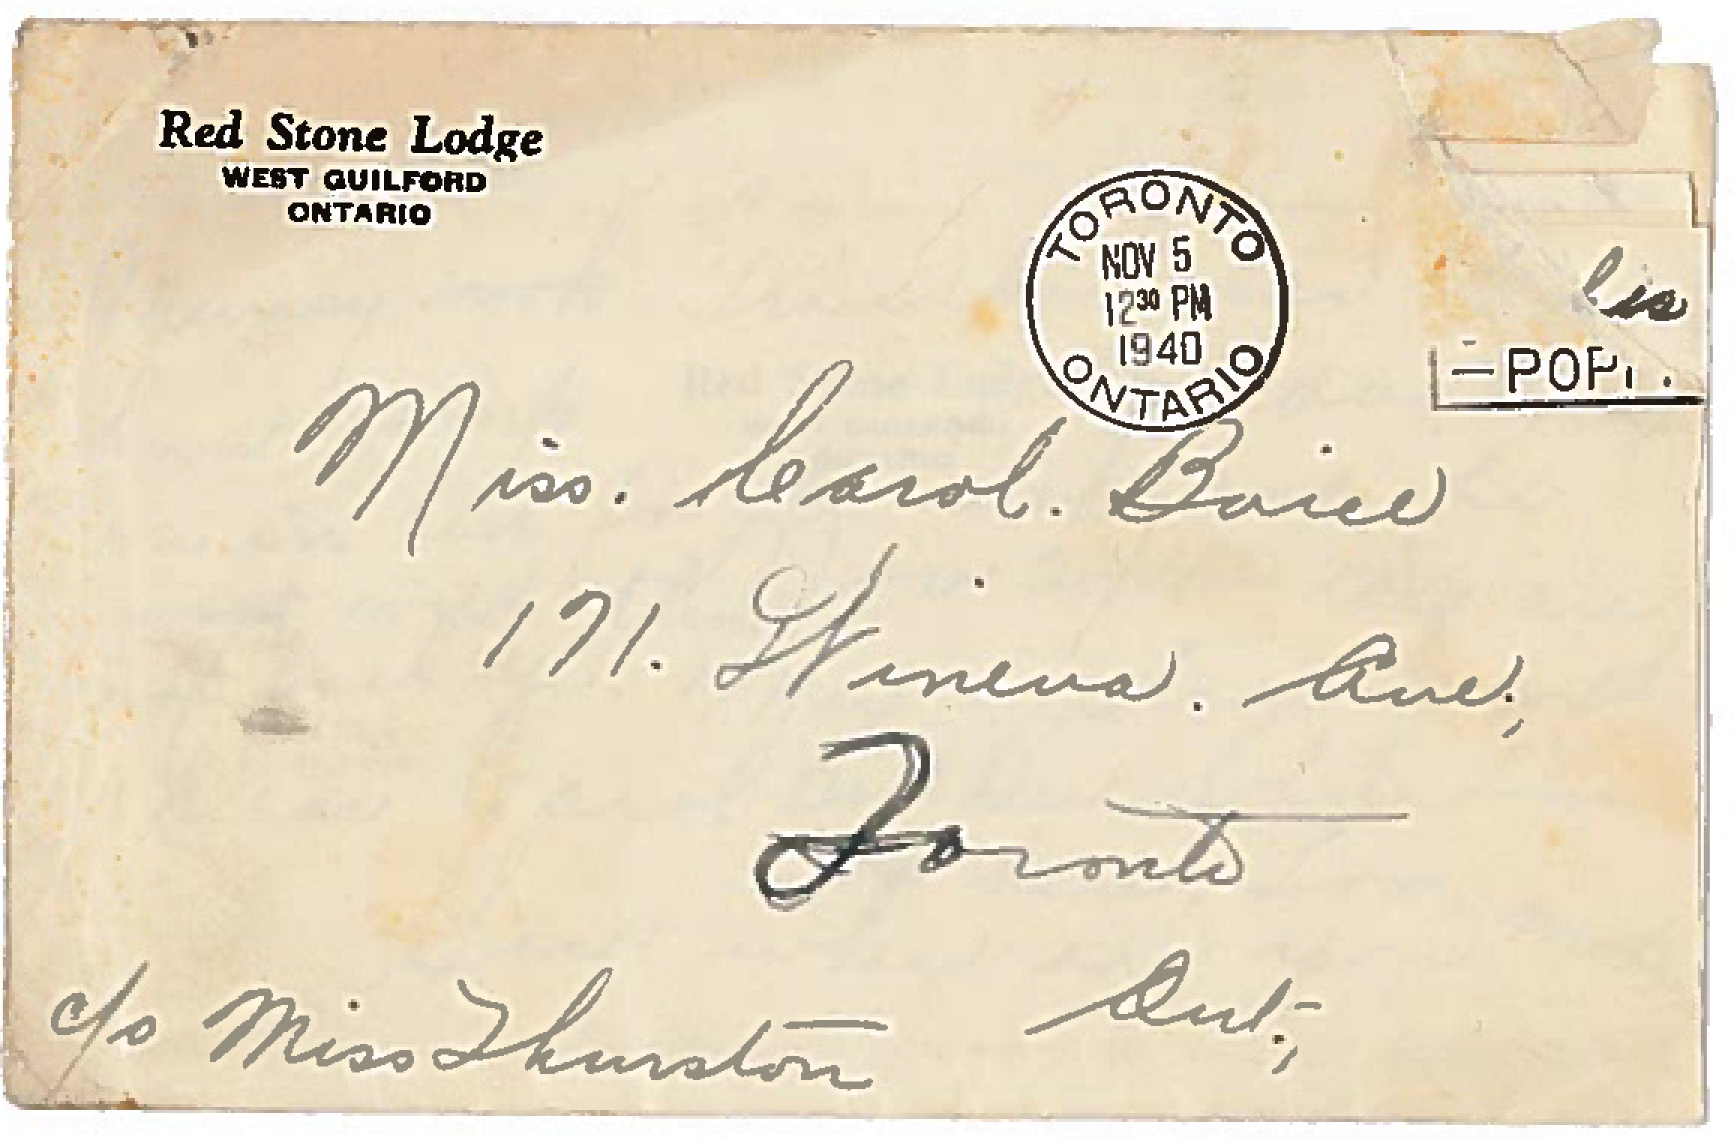 Red Stone Lodge
WEST GUILFORD
ONTARIO
TORONTO
NOV 5
12 30 PM
1940
ONTARIO
Miss. Carol. Boice
171. Wineva. Ave.,
Toronto
Ont.,
c/o Miss Thurston